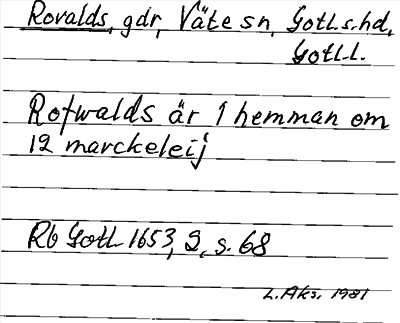 Rovalds, gdr, Väte sn, Gotl.s.hd,
Gotl.l.
Rofwalds är 1 hemman om
12 marckeleij
Rb Gotl 1653, 2, s. 68
L. Aks. 1981